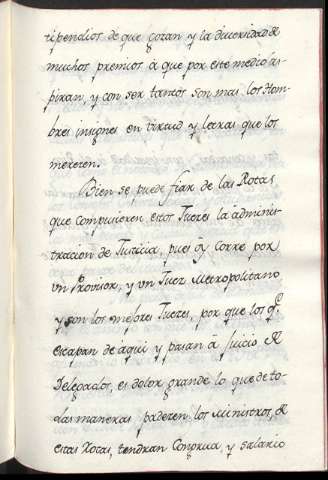 tipendios de que gozan y la diversidad de
muchos premios à que por este medio as-
piran, y con ser tantos son mas los Hom-
bres insignes en virtud y letras que los
mereren.
Bien se puede fiar de las Rotas
que compusieren estos Jueces la adminis-
tracion de Justicia, pues oy corre por
un Provisor, y un Juez Metropolitano
y son los mejores Jueces, por que los q.e
escapan de aqui y pasan à Juicio de
Delegados, es dolor grande lo que de to-
das maneras padecen los Ministros, de
estas Rotas, tendran Congrua, y salario